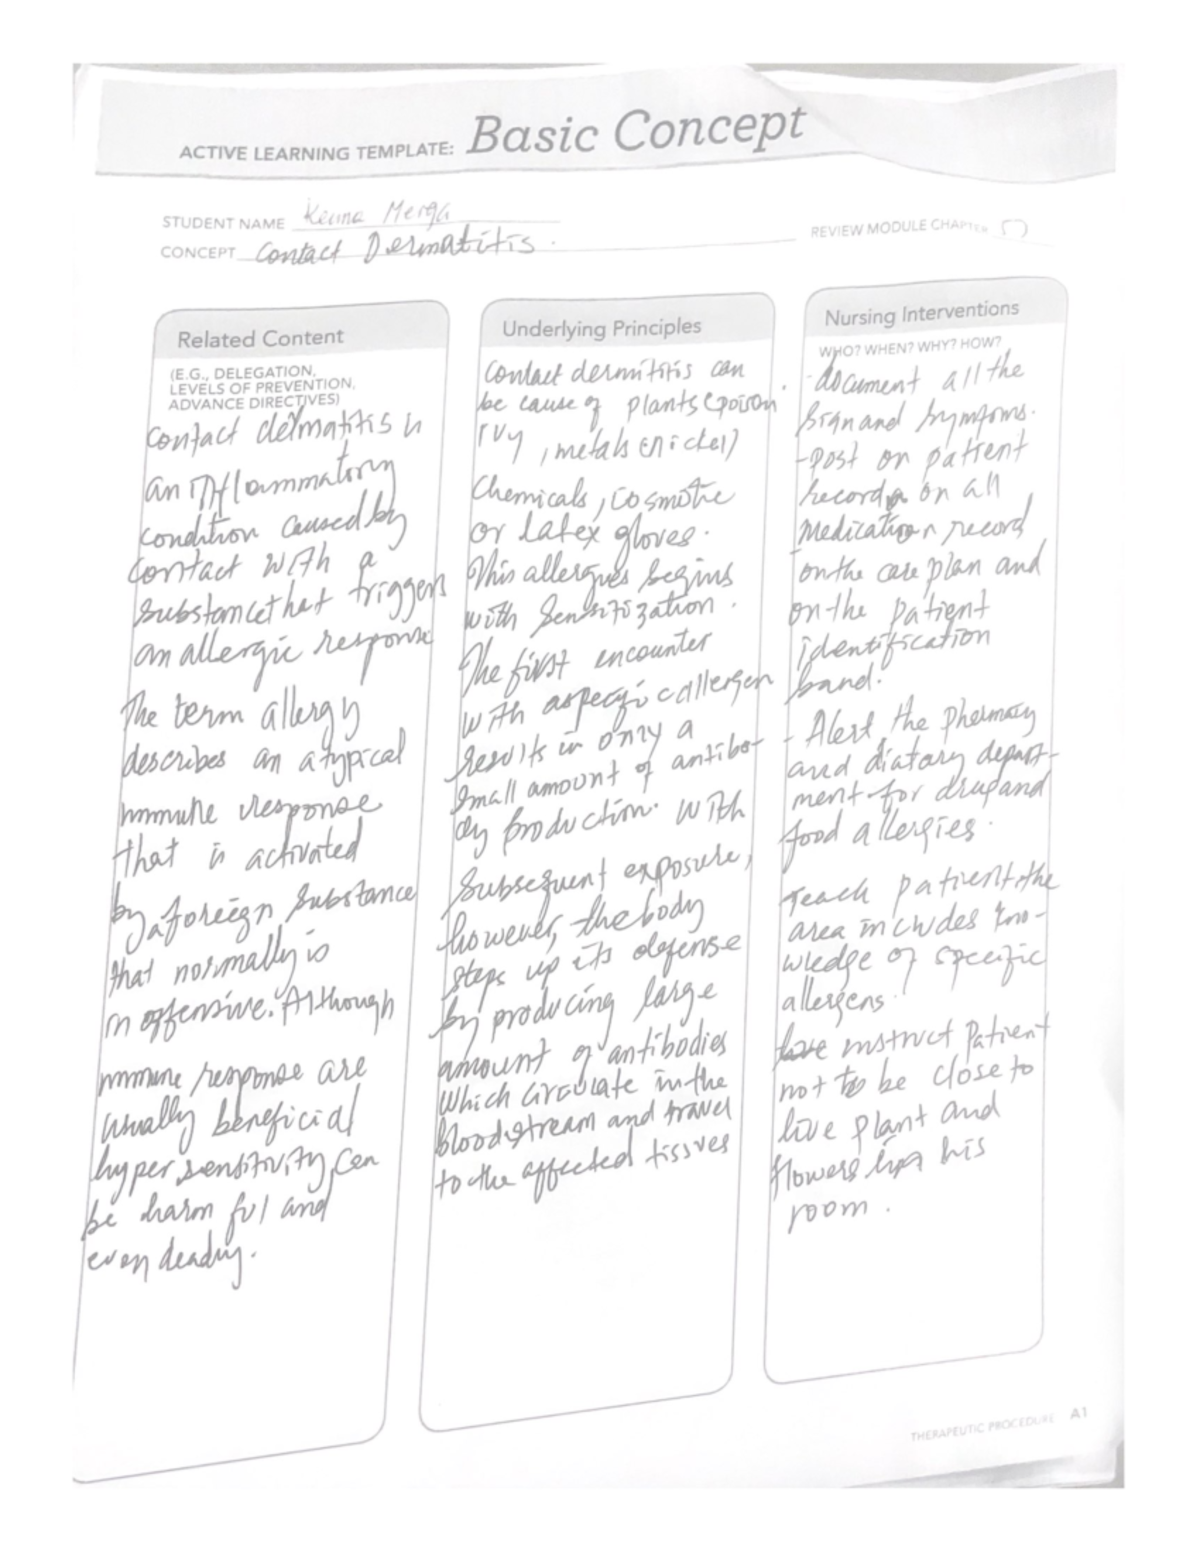 ACTIVE LEARNING TEMPLATE: Basic Concept
STUDENT NAME
CONCEPT Contact Dermatitis.
REVIEW MODULE CHAPTER
Related Content
(E.G., DELEGATION,
LEVELS OF PREVENTION,
ADVANCE DIRECTIVES)
contact dermatitis is
an inflammatory
condition caused by
contact with a
substance that triggers
an allergic response
The term allergy
describes an atypical
immune response
that is activated
by a foreign substance
that normally is
in offensive. Although
immune response are
usually beneficial
hyper sensitivity can
be harm ful and
even deadly.
Underlying Principles
contact dermititis can
be cause of plants (poison
ivy, metals (nickel)
Chemicals, cosmetic
or latex gloves.
This allergies begins
with Sensitization.
The first encounter
with a specific allergen
results in only a
small amount of antibo-
dy production. With
subsequent exposure,
however, the body
steps up its defense
by producing large
amount of antibodies
which circulate in the
bloodstream and travel
to the affected tissues
Nursing Interventions
WHO? WHEN? WHY? HOW?
- document all the
sign and symptoms.
- post on patient
record on all
medication record
on the care plan and
on the patient
identification
band.
- Alert the pharmacy
and diatary depart-
ment for drug and
food allergies.
Teach patient the
area includes kno-
wledge of specific
allergens.
instruct Patient
not to be close to
live plant and
flowers his
room.
THERAPEUTIC PROCEDURE A1